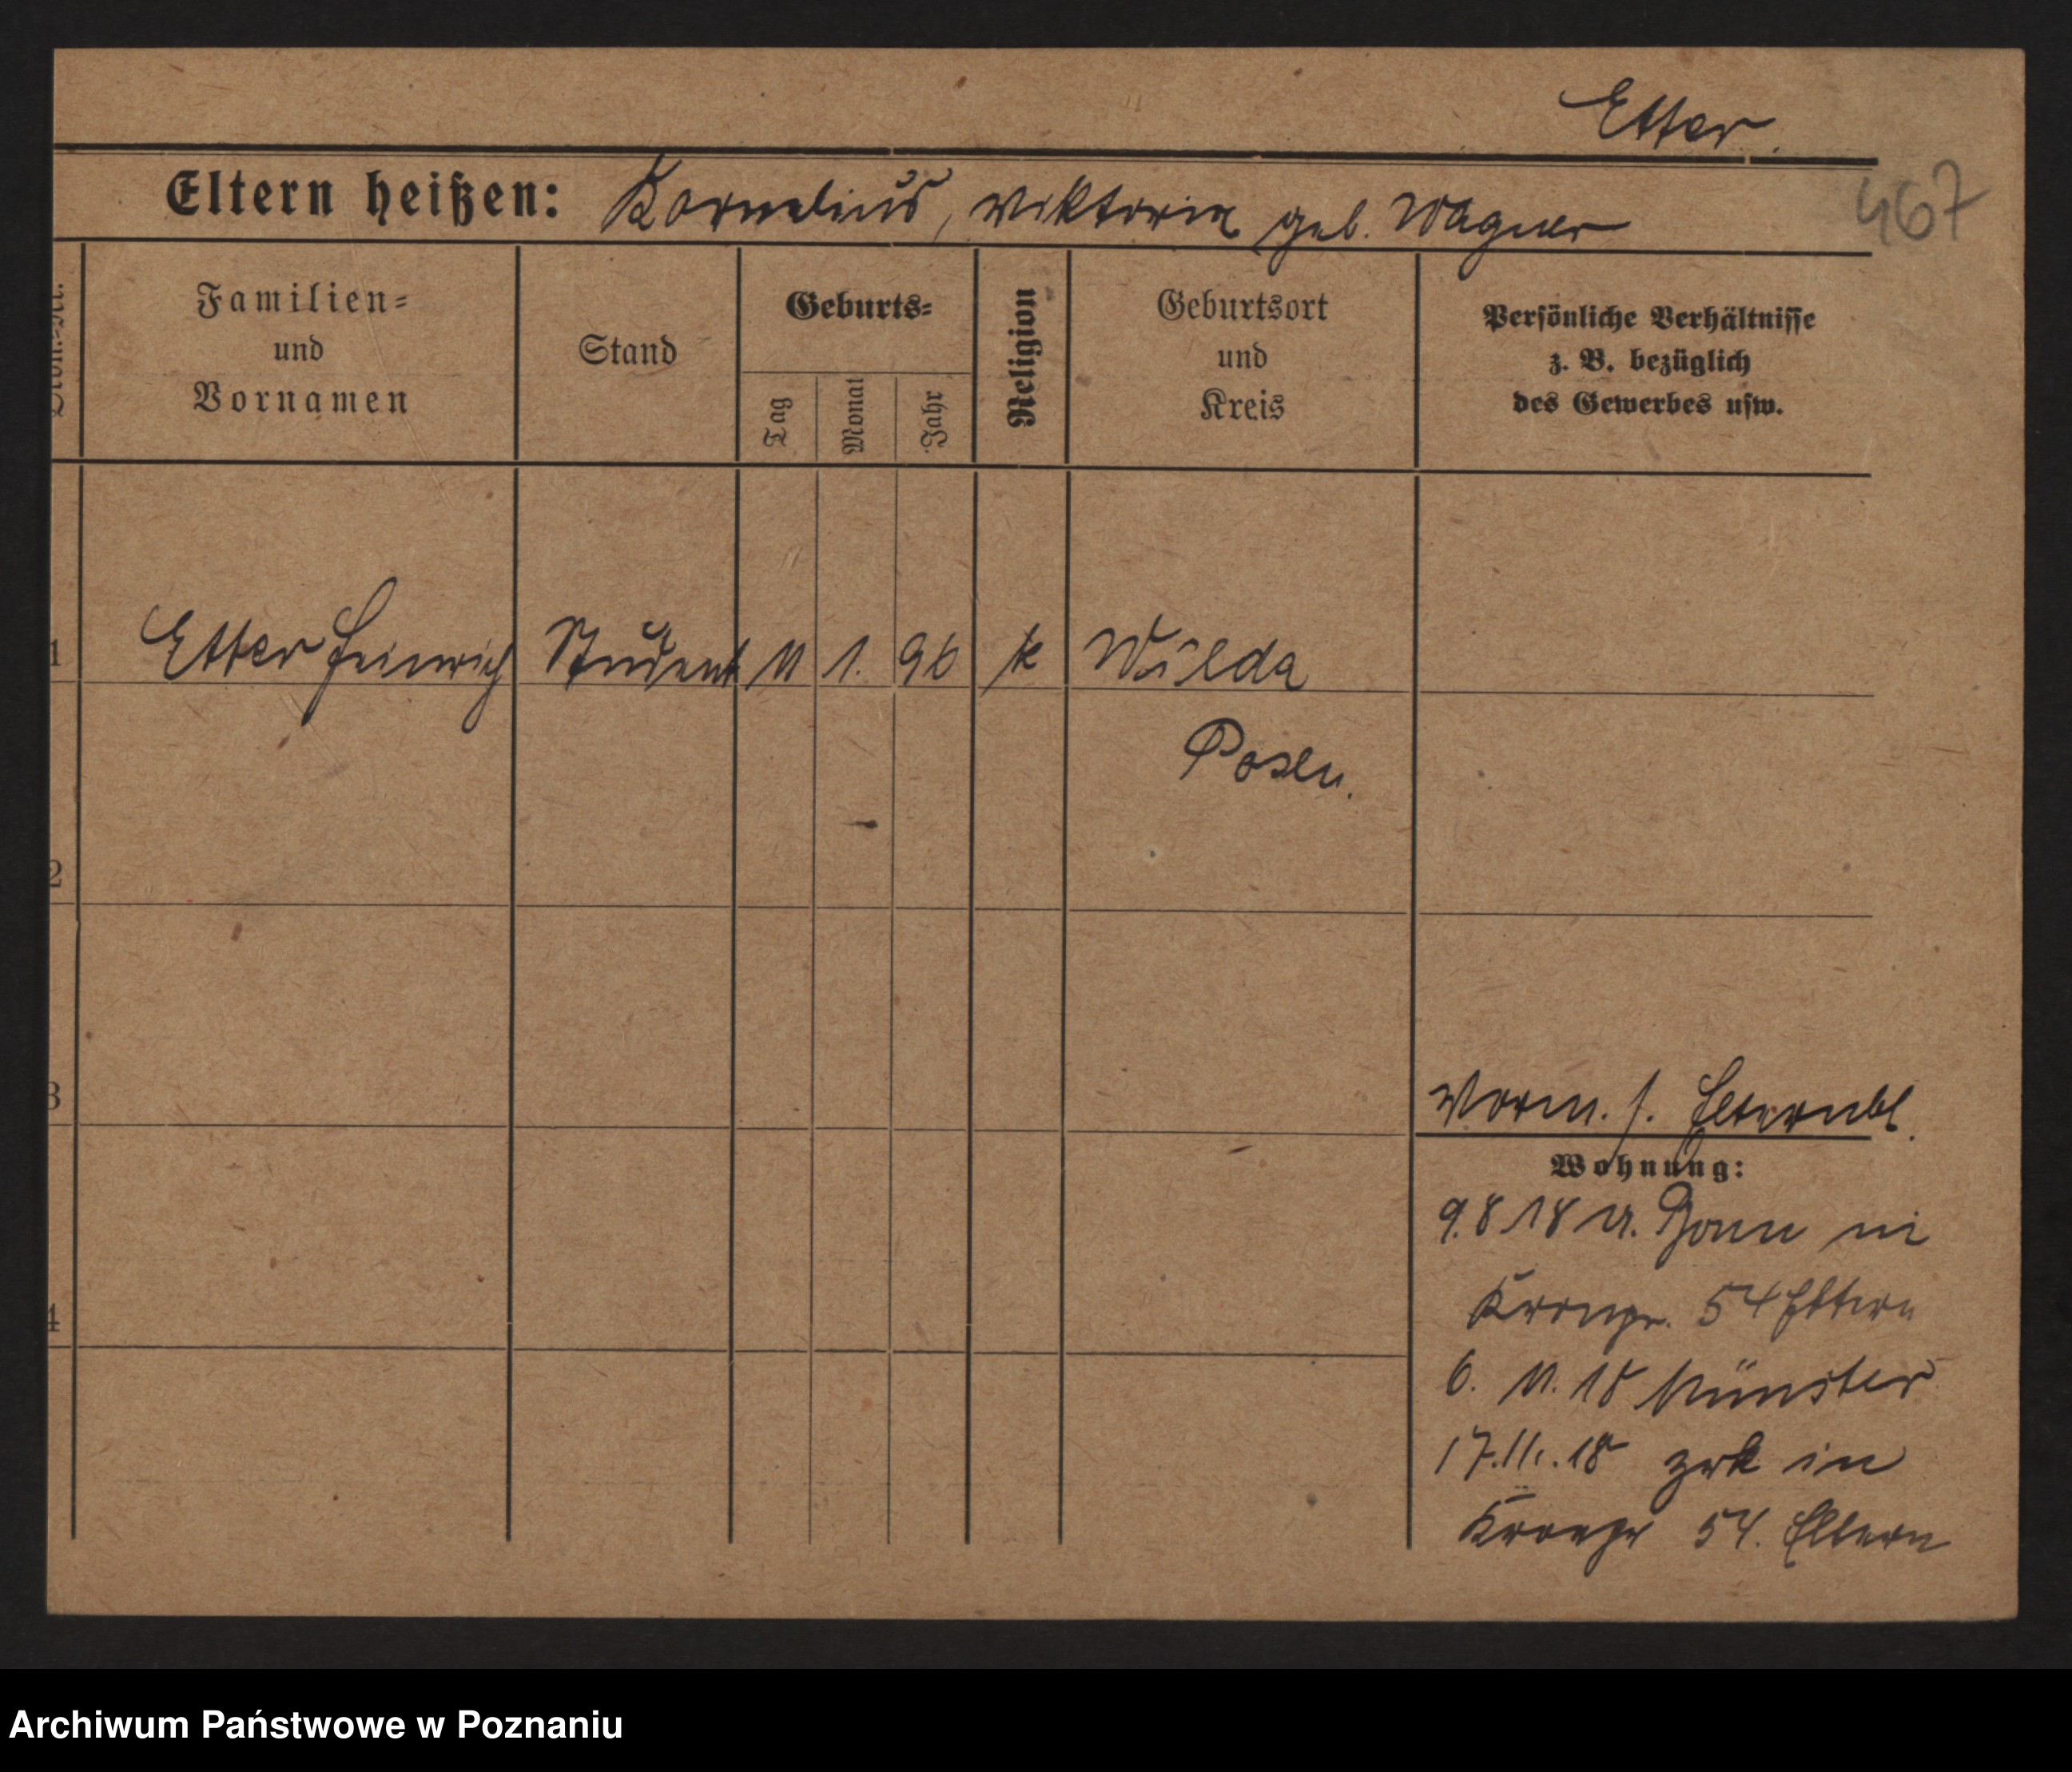 Etter.
467
Eltern heißen: Kornelius, Viktoria geb. Wagner
Familien=
und
Vornamen
Stand
Geburts=
Tag
Monat
Jahr
Religion
Geburtsort
und
Kreis
Persönliche Verhältnisse
z. B. bezüglich
des Gewerbes usw.
1 Etter Heinrich Student 11 1. 96 k Wilda
Posen.
2
3
Vorm. s. Elternbl.
Wohnung:
9.8 18 v. Bonn in
Kronpr. 54 Eltern
4
6. 11. 18 Münster
17.11.18 zrk in
Kronpr 54. Eltern
Archiwum Państwowe w Poznaniu